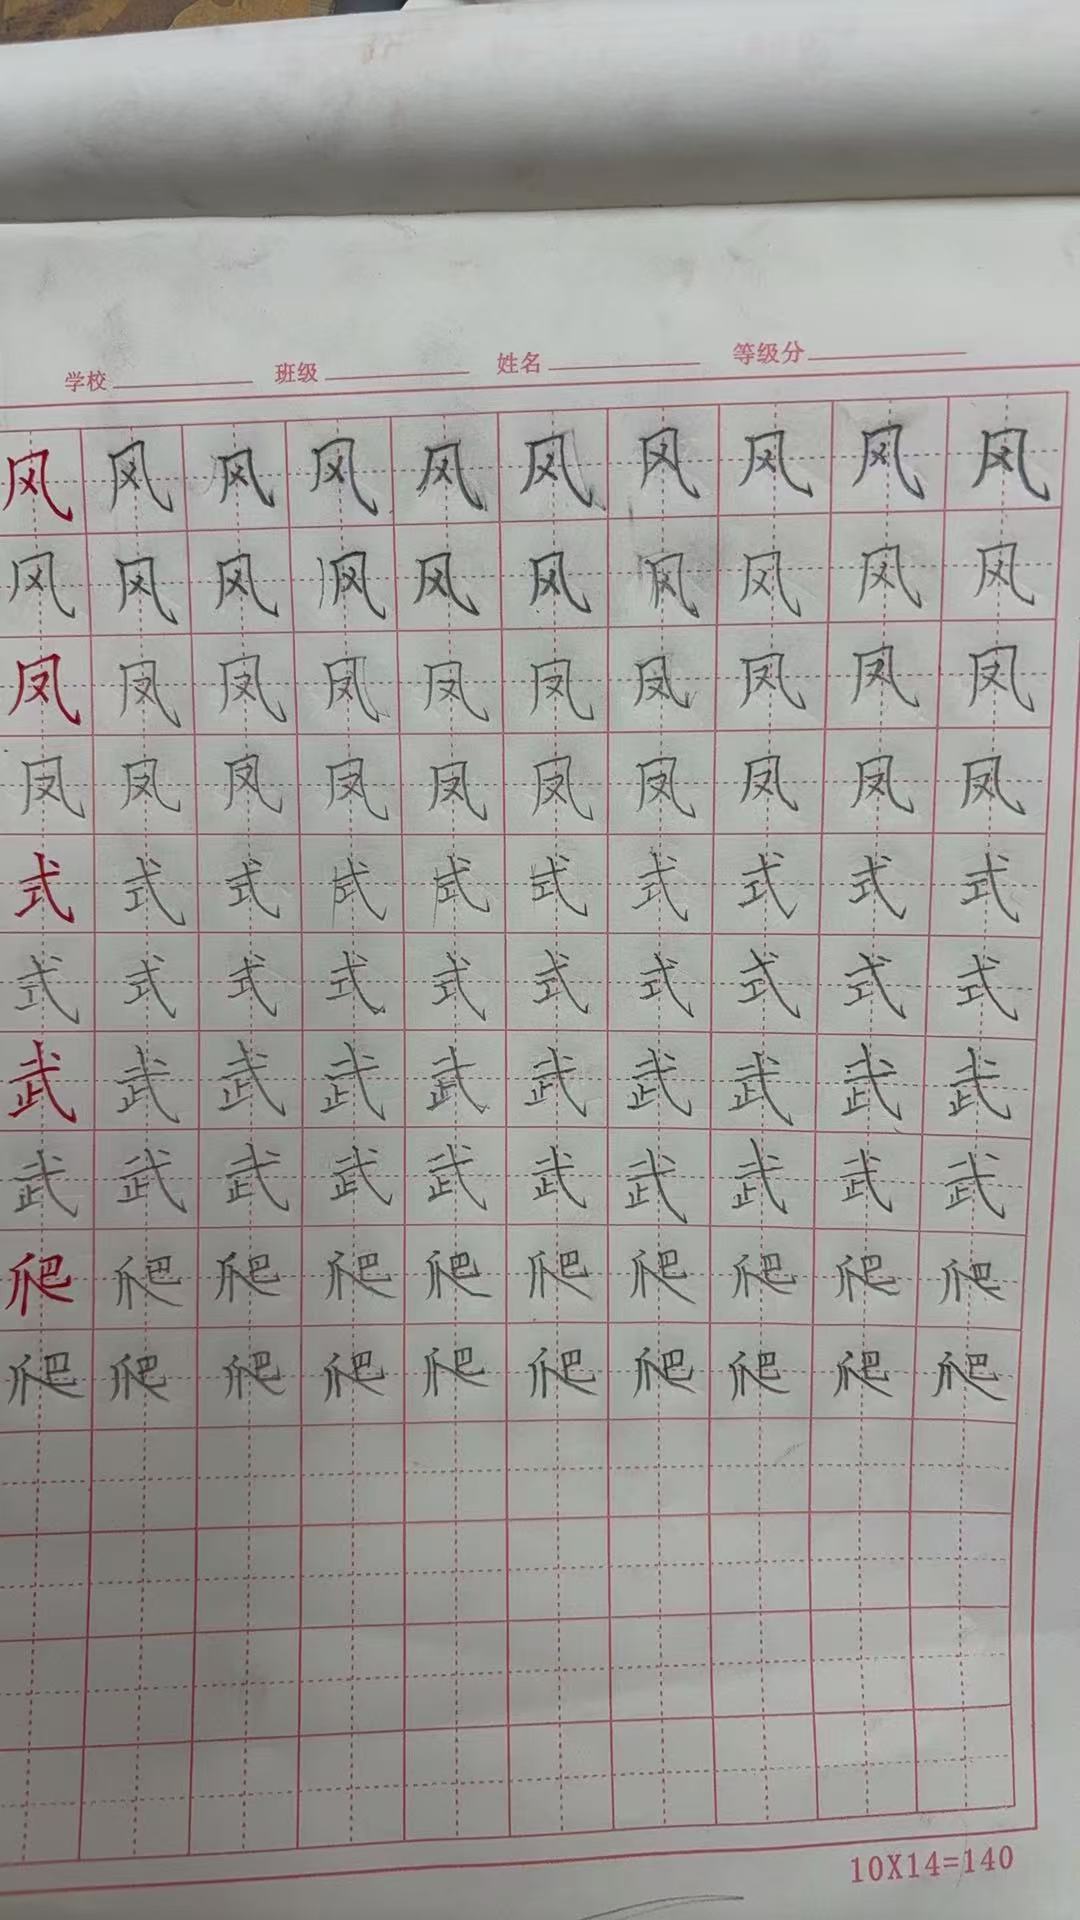 学校 班级 姓名 等级分
风风风风风风风风风风
风风风风风风风风风风
凤凤凤凤凤凤凤凤凤凤
凤凤凤凤凤凤凤凤凤凤
式式式式式式式式式式
式式式式式式式式式式
武武武武武武武武武武
武武武武武武武武武武
爬爬爬爬爬爬爬爬爬爬
爬爬爬爬爬爬爬爬爬爬
10X14=140